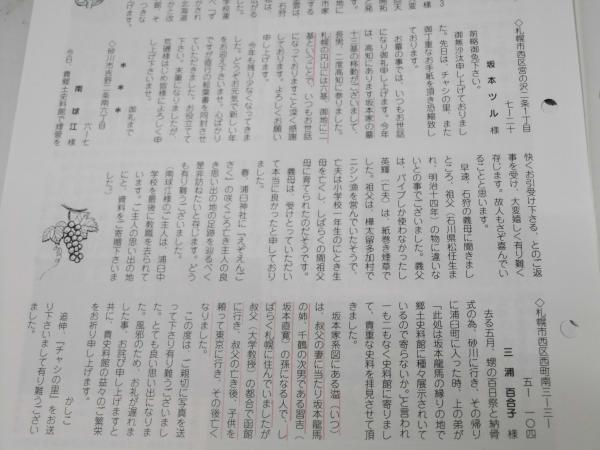 ◇札幌市西区宮の沢二条1丁目
七ー二十
坂本ツル 様
前略御免下さい。
御無沙汰申し上げておりまし
た。先日は、チャシの里、また
御丁重なお手紙を頂き恐縮致し
ております。
お墓の事では、いつもお世話
になり御礼申し上げます。今年
は、高知にあります坂本家の墓
十三基の移動がございまして、
長男、二度高知に参りました。
札幌の円山には六基、御地に二
基ということで、いつもお世話
になっておりますこと深く感謝
申し上げます。よろしくお願い
しております。
今年も残り少なくなってきま
した。どうぞお元気で新しい年
をお迎え下さいませ。心ばかり
ですが直行の絵葉書を同封させ
ていただきました。お役立てて
下さいませ。乱筆になりましたが、
荒磯様はじめ皆様によろしく申
し上げて下さいませ。
御礼まで
＊ ＊ ＊
◇砂川市吉野二条南六丁目
六ー七
南 球江 様
今日、貴郷土史料館で煙管を
快くお引受け下さる、とのご返
事を受け、大変嬉しく有り難く
存じます。故人もさぞ喜んでい
ることと思います。
早速、石狩の義母に聞きまし
たところ、祖父（石川県松任生ま
れ、明治十四年）の物に違いな
いとの事でございました。義父
は、パイプしか使わなかったし
英輝（亡夫）は、紙巻き煙草で
した。祖父は、樺太留多加村で
ニシン漁を営んでいたそうで、
亡夫は小学校一年生のとき生
母を亡くし、しばらくの間祖父
母に育てられたのだそうです。
義母は、受けとっていただい
て本当に良かったと申しており
ました。
春、浦臼神社に「えぞえんご
さく」の咲くころ亡き主人の良
き思い出の地の足跡を辿るべく
是非訪ねたいと存じます。どう
も有り難うございました。
（南球江様のご主人は、浦臼中
学校を最後に教職を去られて
います。ご主人の思い出の地
にと、資料をご寄贈下さいま
した。）
◇札幌市西区西町南三ー三ー
五ー一〇四
三浦百合子 様
去る五月、甥の百日祭と納骨
式の為、砂川に行き、その帰り
に浦臼町に入った時、上の弟が
「此処は坂本龍馬の縁りの地で
郷土史料館に種々展示されいて
いるので寄らないか。」と言われ
一も二もなく史料館に寄りまし
て、貴重な史料を拝見させて頂
きました。
坂本家系図にある溢（いつ）
は、叔父の妻に当たり坂本龍馬
の姉、千鶴の次男である習吉（
坂本直寛）の孫になる人で、し
ばらく札幌に住んでいましたが
叔父（大学教授）の都合で函館
に行き、叔父の亡き後、子供を
頼って東京に行き、その後亡く
なりました。
この度は、ご親切に写真を送
って下さり有り難うございまし
た。とても良い思い出になりま
した。風邪のため、お礼が遅れま
した事、お詫び申し上げますと
共に、貴史料館の益々のご繁栄
をお祈り申し上げます。
かしこ
追伸、「チャシの里」をお送
り下さいまして有り難うござい
ました。